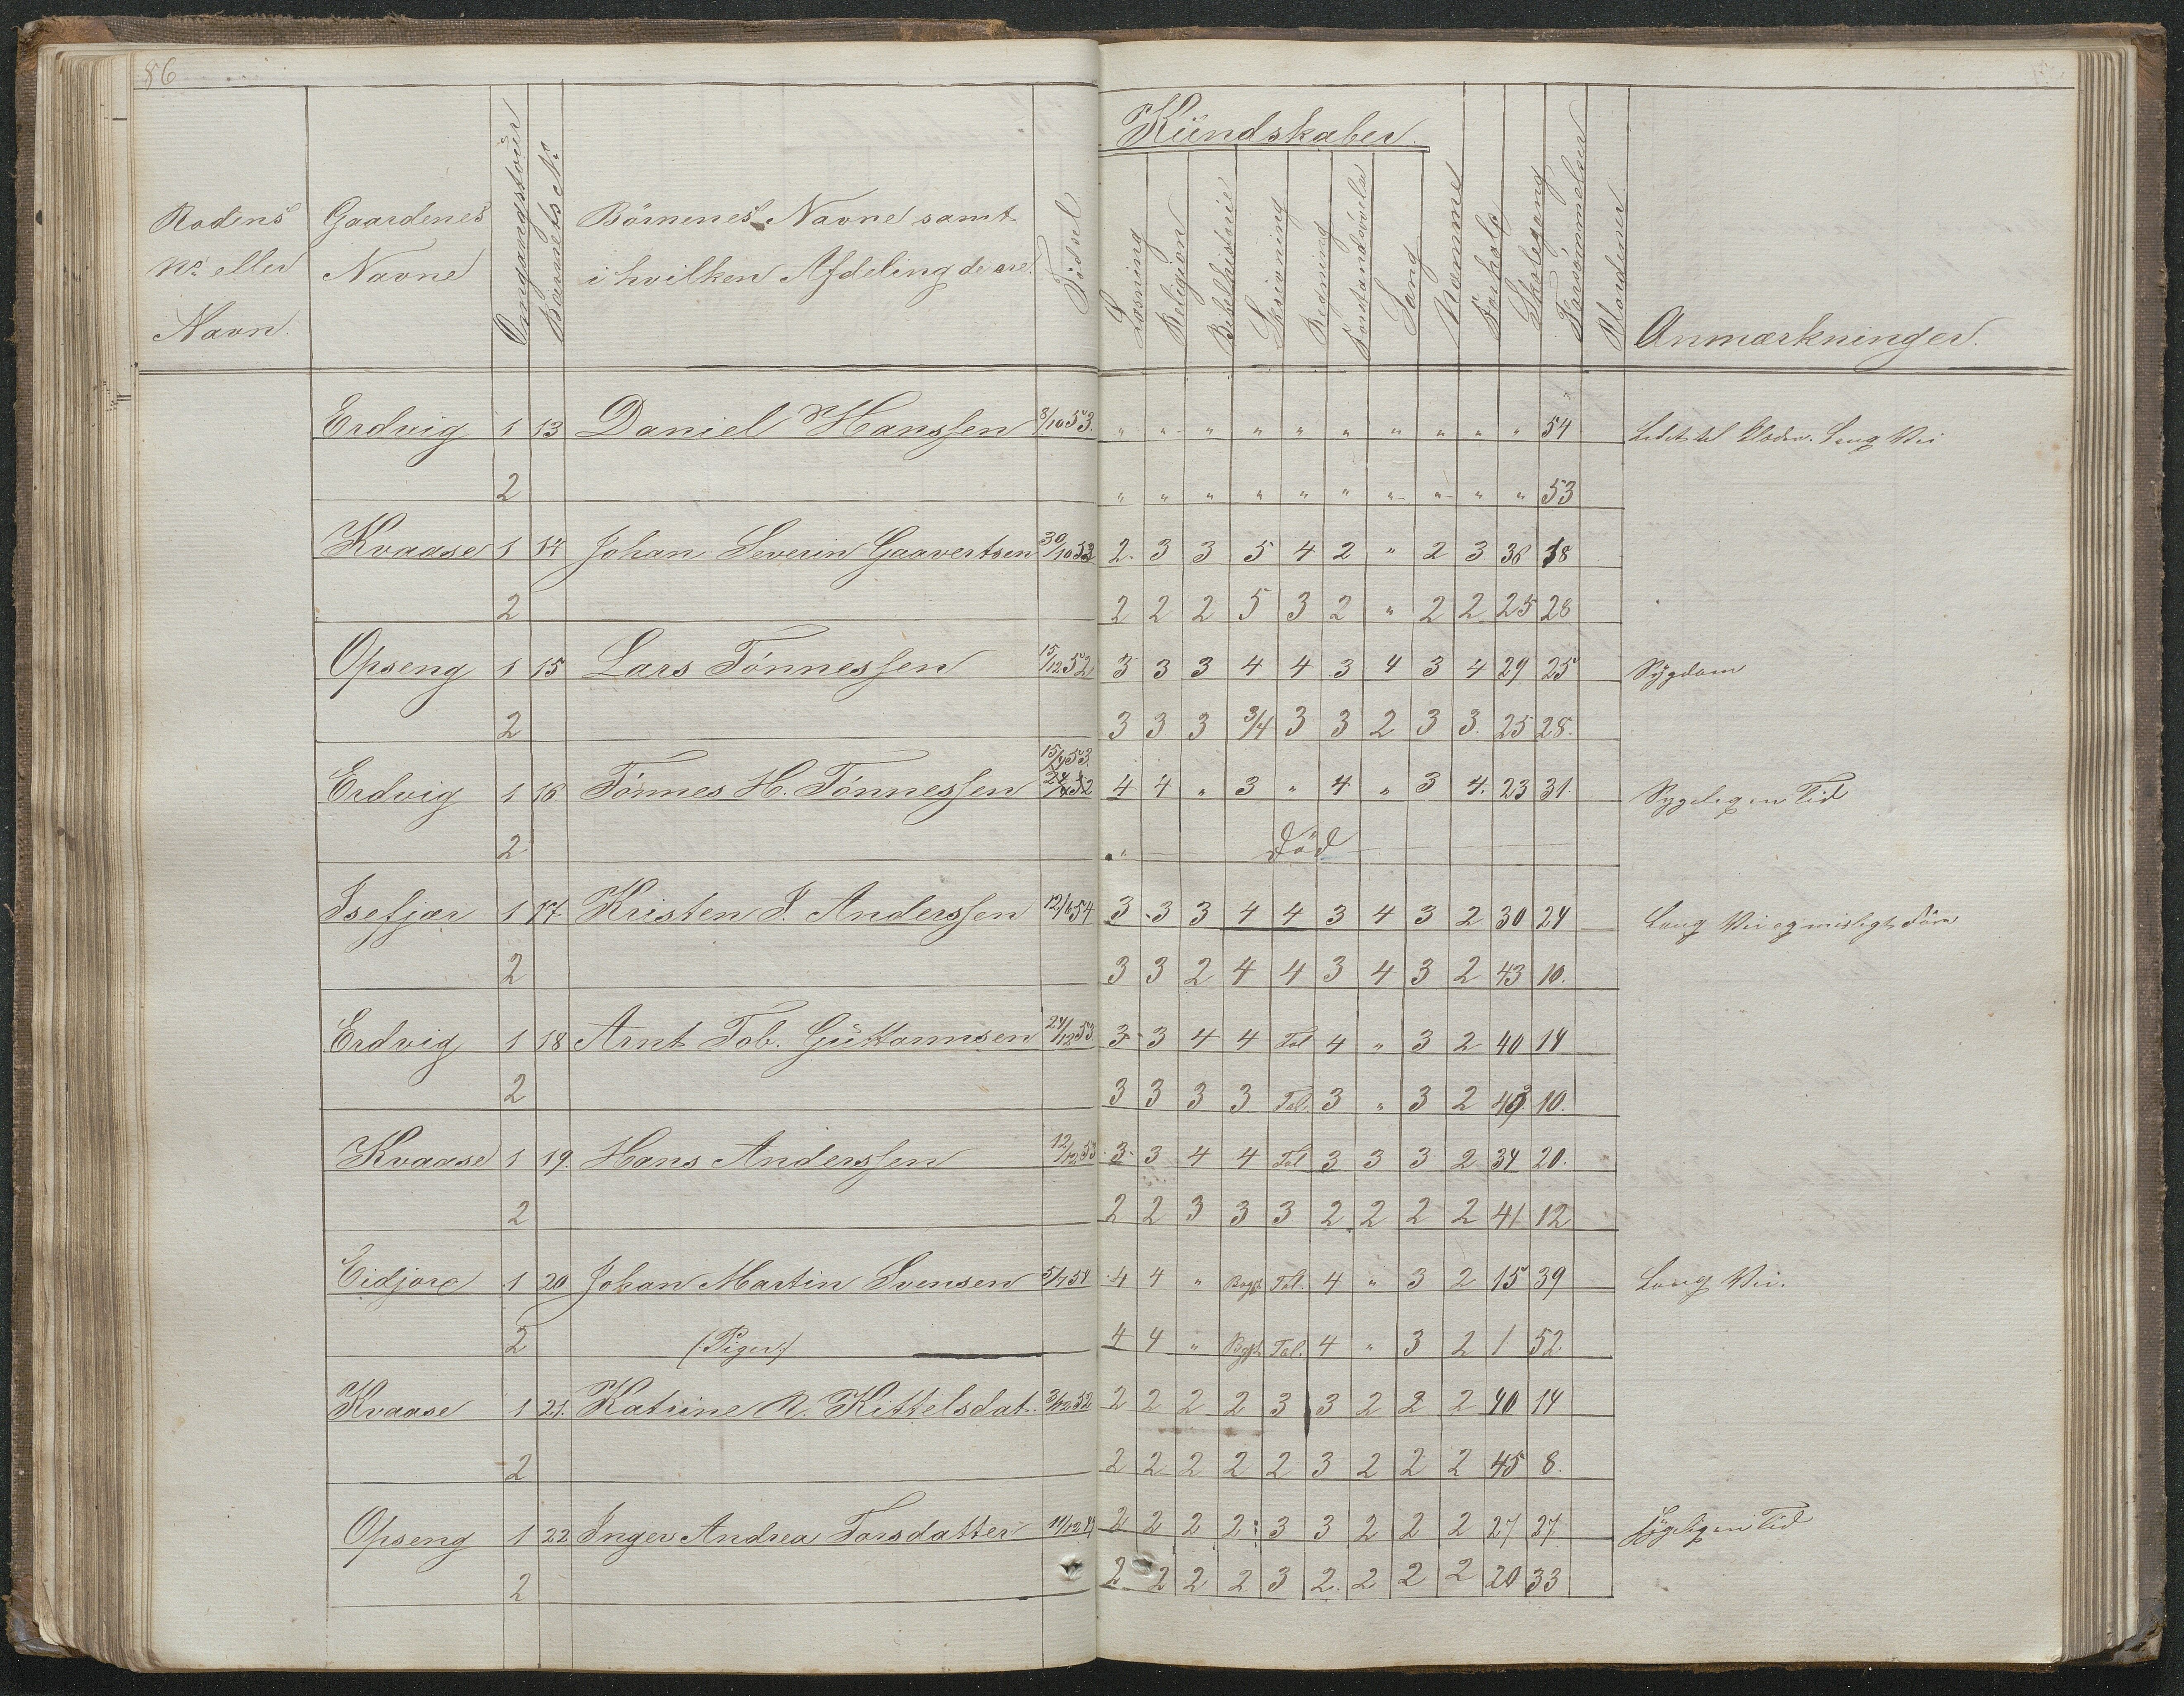 86
Rodens No. eller Navn.
Gaardenes Navne
Omgangstour
Barnets No.
Börnenes Navne samt i hvilken Afdeling de ere.
Födsel.
Kündskaber.
Læsning
Religion
Bibelhistorie
Skrivning
Regning
Forstandsøvelse
Sang
Nemme
Forhold
Skolegang
Forsömmelser
Anmærkninger.
Erdvig 1 13 Daniel Hanssen 8/10 53. " " " " " " " " " " 54 Lang Vei
2 " " " " " " " " " " 53
Kvaase 1 14 Johan Severin Gaavertsen 30/10 53 2. 3 3 5 4 2 " 2 3 36 18
2 2 2 2 5 3 2 " 2 2 25 28
Opseng 1 15 Lars Tönnessen 15/12 52 3 3 3 4 4 3 4 3 4 29 25 Sygdom
2 3 3 3 3/4 3 3 2 3 3. 25 28.
Erdvig 1 16 Tönnes H. Tönnessen 4 4 " 3 " 4 " 3 4. 23 31. Sygelig en Tid
2 " Död
Isefjær 1 17 Kristen J. Anderssen 12/6 54 3 3 3 4 4 3 4 3 2 30 24 Lang Vei og
2 3 3 2 4 4 3 4 3 2 43 10.
Erdvig 1 18 Arnt Tob. Güttormsen 24/12 53 3 3 4 4 Tal 4 " 3 2 40 14
2 3 3 3 3 Tal. 3 " 3 2 43 10.
Kvaase 1 19. Hans Anderssen 12/12 53 3 3 4 4 Tal 3 3 3 2 34 20.
2 2 2 3 3 3 2 2 2 2 41 12
Eidjore 1 20 Johan Martin Svensen 5/7 54 4 4 " Bogst Tal. 4 " 3 2 15 39 Lang Vei.
2 (Piger) 4 4 " Bogst Tal. 4 " 3 2 1 52.
Kvaase 1 21. Katrine R. Kittelsdat. 3/12 52 2 2 2 2 3 3 2 2 2 40 14
2 2 2 2 2 2 3 2 2 2 45 8.
Opseng 1 22 Inger Andrea Torsdatter 2 2 2 2 3 3 2 2 2 27 27 Sygelig en Tid
2 2 2 2 2 3 2. 2 2 2 20 33